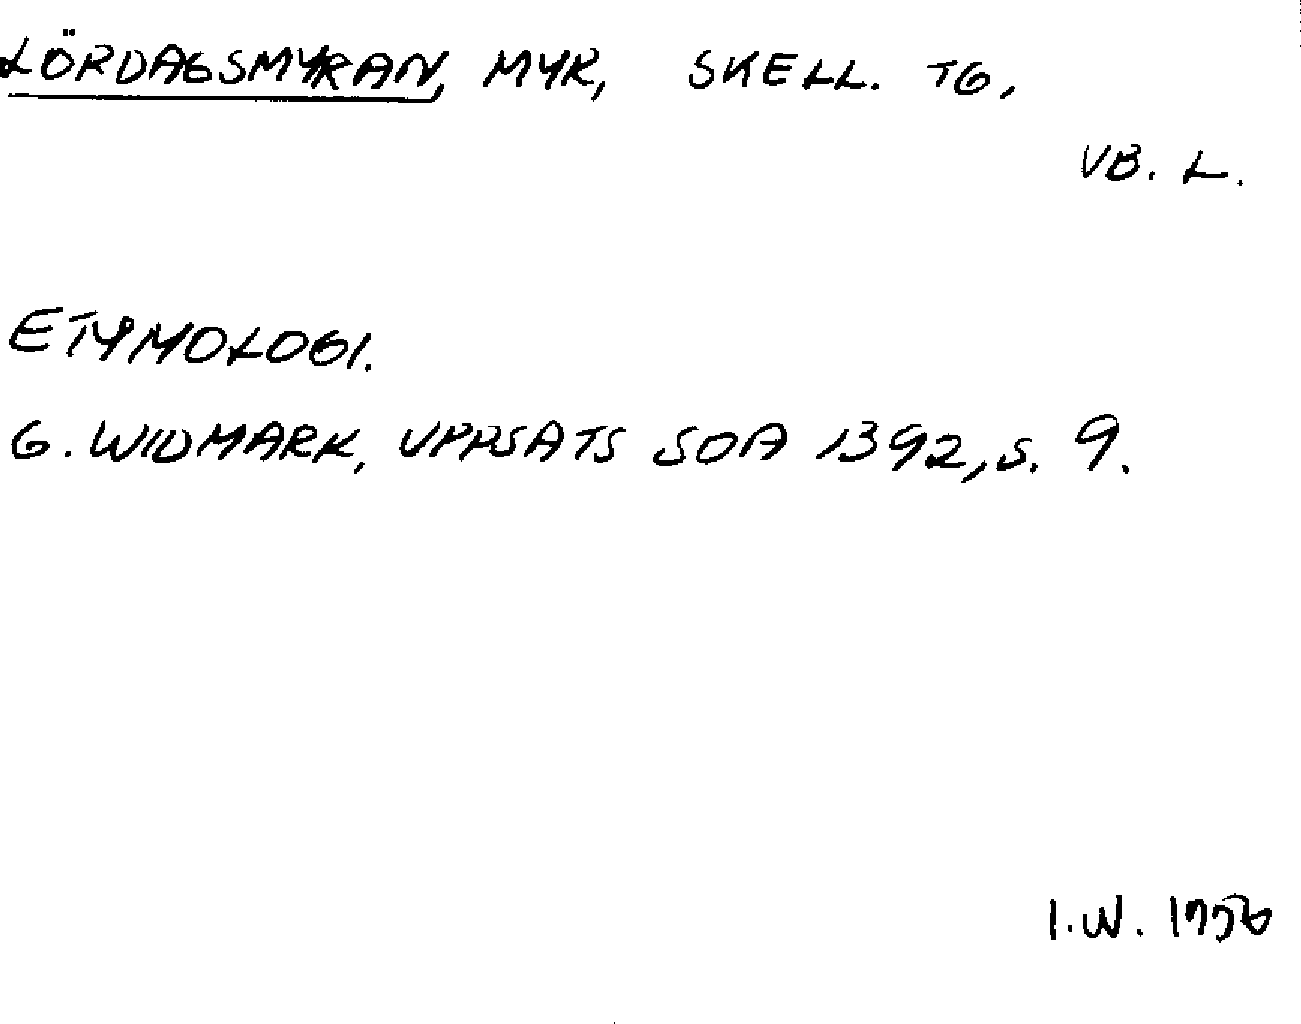 LÖRDAGSMYRAN, MYR, SKELL. TG,
VB. L.
ETYMOLOGI.
G. WIDMARK, UPPSATS SOA 1392, S. 9.
I.W. 1956